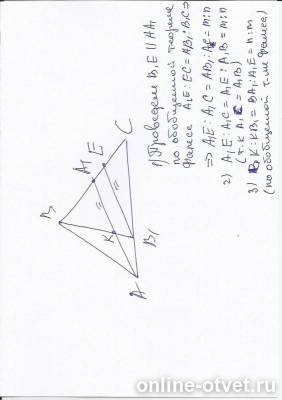 1) Проведем B₁E || AA₁
по обобщенной теореме
Фалеса A₁E : EC = AB₁ : B₁C ⇒
⇒ A₁E : A₁C = AB₁ : AC = m : n
2) A₁E : A₁C = A₁E : A₁B = m : n
(т.к. A₁C = A₁B)
3) BK : KB₁ = BA₁ : A₁E = n : m
(по обобщенной т-ме Фалеса)
B
A₁
E
C
K
B₁
A
online-otvet.ru